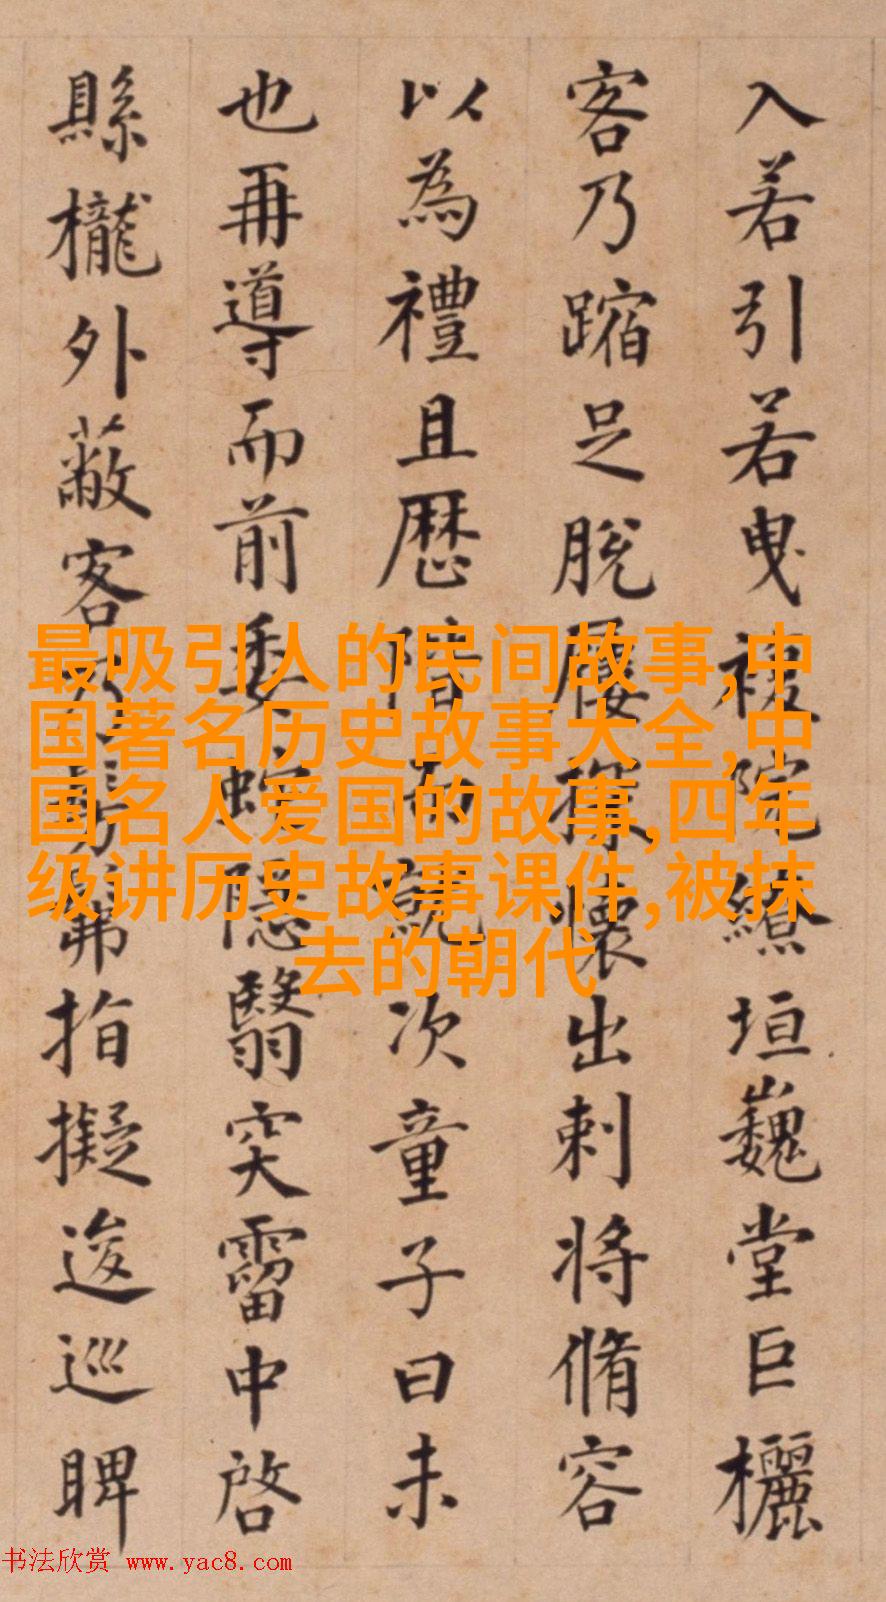 入若引若曳複院繚垣巍堂巨欐
客乃蹜足脫屨探懷出刺將脩容
以為禮且歷階而就次童子曰未
也再導而前委蛇隱翳突霤中啓
縣櫳外蔽客
指擬逡巡睥
最吸引人的民间故事,中
国著名历史故事大全,中
国名人爱国的故事,四年
级讲历史故事课件,被抹
去的朝代
书法欣赏 www.yac8.com